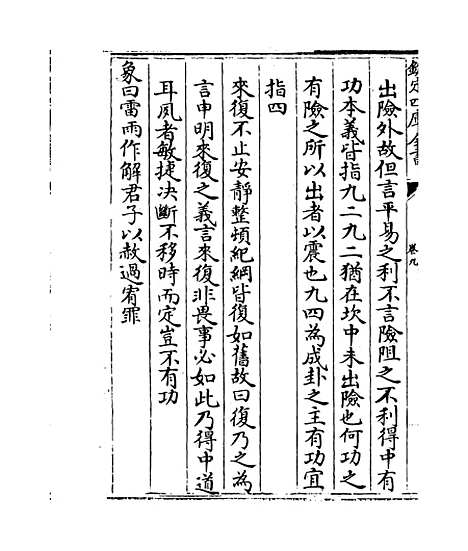 欽定四庫全書
卷九
出險外故但言平易之利不言險阻之不利得中有
功本義皆指九二九二猶在坎中未出險也何功之
有險之所以出者以震也九四為成卦之主有功宜
指四
來復不止安靜整頓紀綱皆復如舊故曰復乃之為
言申明來復之義言來復非畏事必如此乃得中道
耳夙者敏捷決斷不移時而定豈不有功
象曰雷雨作解君子以赦過宥罪